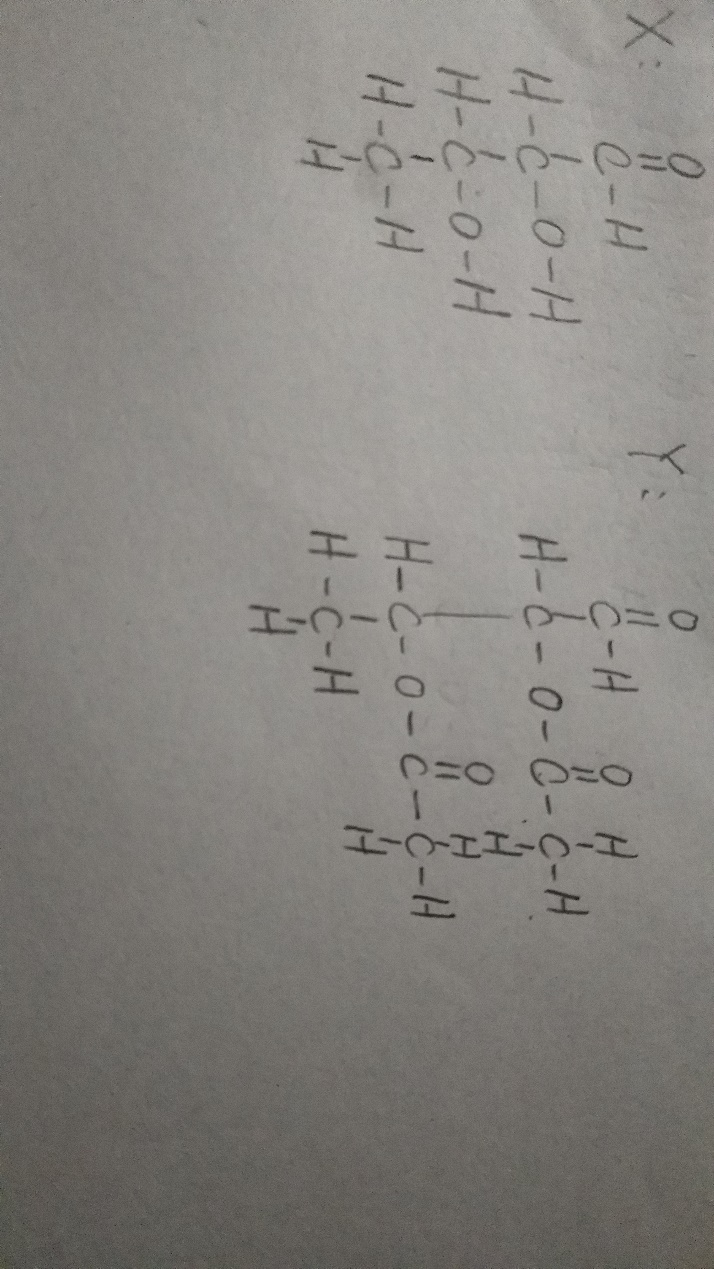 X:
O
||
C-H
|
H-C-O-H
|
H-C-O-H
|
H-C-H
|
H
Y:
O
||
C-H
| O H
| || |
H-C-O-C-C-H
| |
| H
| O H
| || |
H-C-O-C-C-H
| |
H-C-H H
|
H